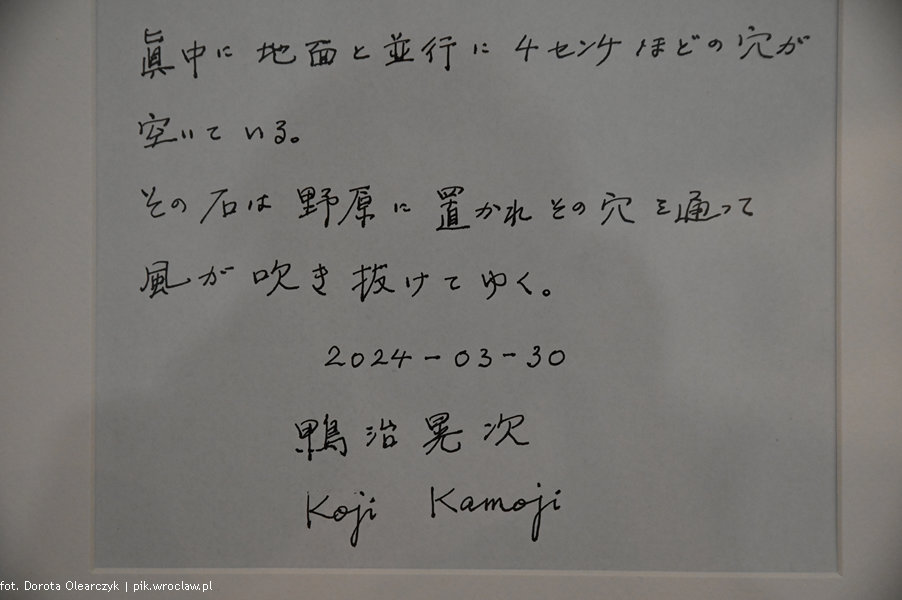 眞中に地面と並行に4センチほどの穴が
空いている。
その石は野原に置かれその穴を通って
風が吹き抜けてゆく。
2024-03-30
鴨治晃次
Koji Kamoji
fot. Dorota Olearczyk | pik.wroclaw.pl